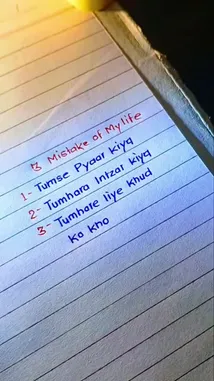 3 Mistake of My life
1- Tumse Pyaar kiya
2- Tumhara Intzar kiya
3- Tumhare liye khud
ko kho